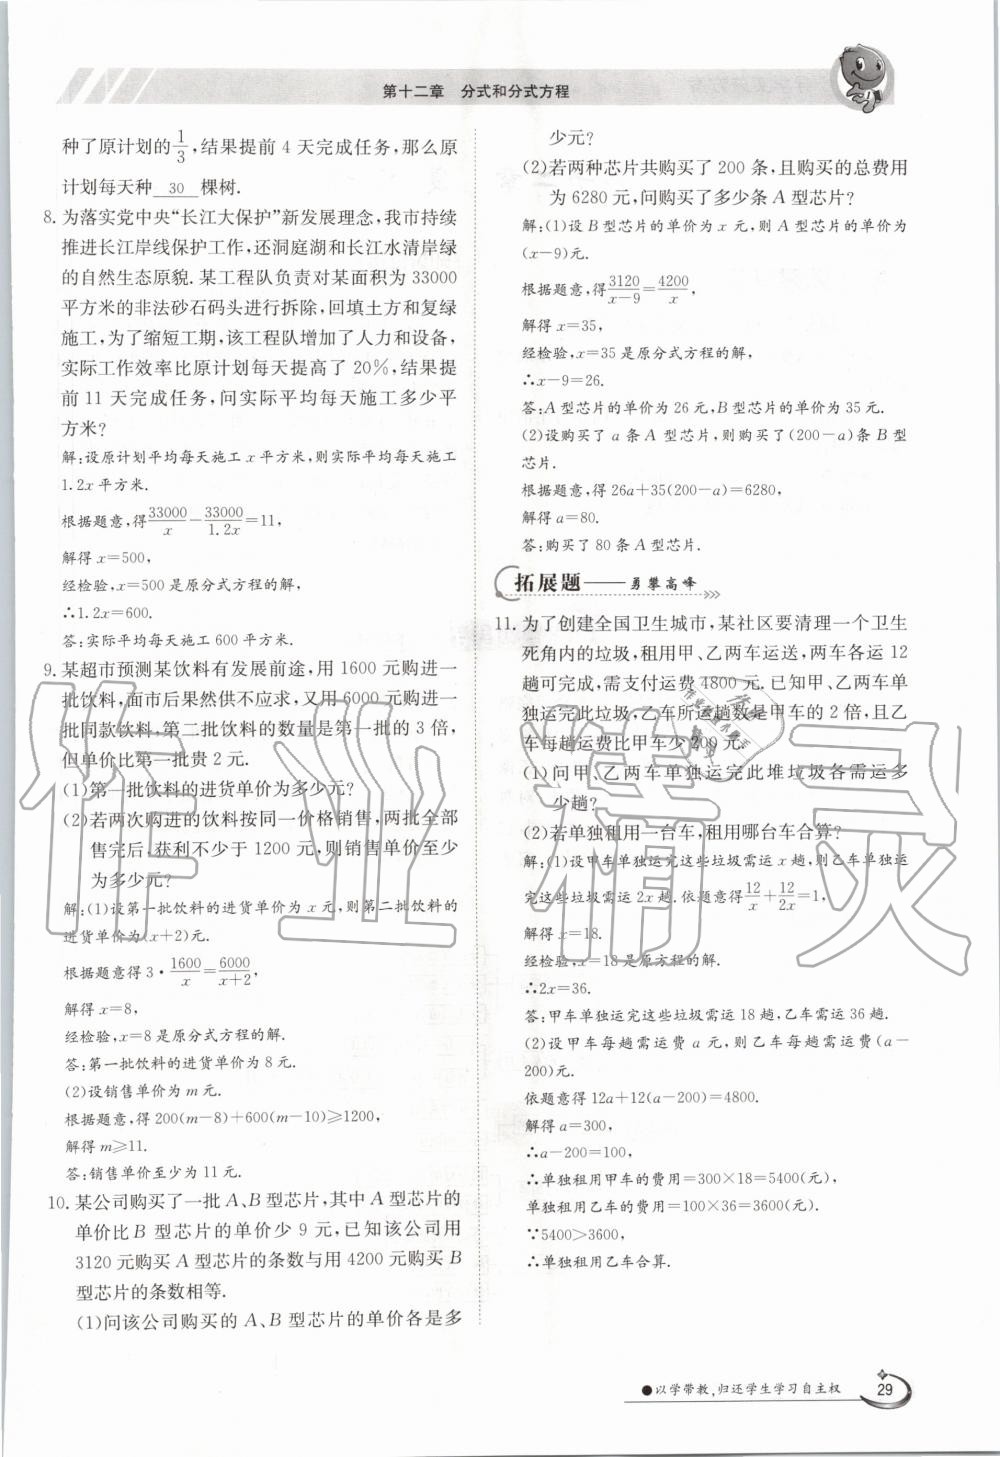 第十二章 分式和分式方程
种了原计划的1/3,结果提前 4 天完成任务,那么原
计划每天种 30 棵树.
8. 为落实党中央“长江大保护”新发展理念,我市持续
推进长江岸线保护工作,还洞庭湖和长江水清岸绿
的自然生态原貌.某工程队负责对某面积为 33000
平方米的非法砂石码头进行拆除,回填土方和复绿
施工,为了缩短工期,该工程队增加了人力和设备,
实际工作效率比原计划每天提高了 20%,结果提
前 11 天完成任务,问实际平均每天施工多少平
方米?
解:设原计划平均每天施工 x 平方米,则实际平均每天施工
1.2x 平方米.
根据题意,得33000/x−33000/1.2x=11,
解得 x=500,
经检验,x=500 是原分式方程的解,
∴1.2x=600.
答:实际平均每天施工 600 平方米.
9. 某超市预测某饮料有发展前途,用 1600 元购进一
批饮料,面市后果然供不应求,又用 6000 元购进一
批同款饮料,第二批饮料的数量是第一批的 3 倍,
但单价比第一批贵 2 元.
(1)第一批饮料的进货单价为多少元?
(2)若两次购进的饮料按同一价格销售,两批全部
售完后,获利不少于 1200 元,则销售单价至少
为多少元?
解:(1)设第一批饮料的进货单价为 x 元,则第二批饮料的
进货单价为(x+2)元.
根据题意得 3·1600/x=6000/x+2,
解得 x=8,
经检验,x=8 是原分式方程的解.
答:第一批饮料的进货单价为 8 元.
(2)设销售单价为 m 元.
根据题意,得 200(m−8)+600(m−10)≥1200,
解得 m≥11.
答:销售单价至少为 11 元.
10. 某公司购买了一批 A、B 型芯片,其中 A 型芯片的
单价比 B 型芯片的单价少 9 元,已知该公司用
3120 元购买 A 型芯片的条数与用 4200 元购买 B
型芯片的条数相等.
(1)问该公司购买的 A、B 型芯片的单价各是多
少元?
(2)若两种芯片共购买了 200 条,且购买的总费用
为 6280 元,问购买了多少条 A 型芯片?
解:(1)设 B 型芯片的单价为 x 元,则 A 型芯片的单价为
(x−9)元.
根据题意,得3120/x−9=4200/x,
解得 x=35,
经检验,x=35 是原分式方程的解,
∴x−9=26.
答:A 型芯片的单价为 26 元,B 型芯片的单价为 35 元.
(2)设购买了 a 条 A 型芯片,则购买了(200−a)条 B 型
芯片.
根据题意,得 26a+35(200−a)=6280,
解得 a=80.
答:购买了 80 条 A 型芯片.
拓展题——勇攀高峰
11. 为了创建全国卫生城市,某社区要清理一个卫生
死角内的垃圾,租用甲、乙两车运送,两车各运 12
趟可完成,需支付运费 4800 元.已知甲、乙两车单
独运完此垃圾,乙车所运趟数是甲车的 2 倍,且乙
车每趟运费比甲车少 200 元.
(1)问甲、乙两车单独运完此堆垃圾各需运多
少趟?
(2)若单独租用一台车,租用哪台车合算?
解:(1)设甲车单独运完这些垃圾需运 x 趟,则乙车单独运
完这些垃圾需运 2x 趟.依题意得12/x+12/2x=1,
解得 x=18.
经检验,x=18 是原方程的解.
∴2x=36.
答:甲车单独运完这些垃圾需运 18 趟,乙车需运 36 趟.
(2)设甲车每趟需运费 a 元,则乙车每趟需运费(a−
200)元.
依题意得 12a+12(a−200)=4800.
解得 a=300,
∴a−200=100,
∴单独租用甲车的费用=300×18=5400(元),
单独租用乙车的费用=100×36=3600(元).
∵5400>3600,
∴单独租用乙车合算.
●以学带教,归还学生学习自主权
29
作业精灵